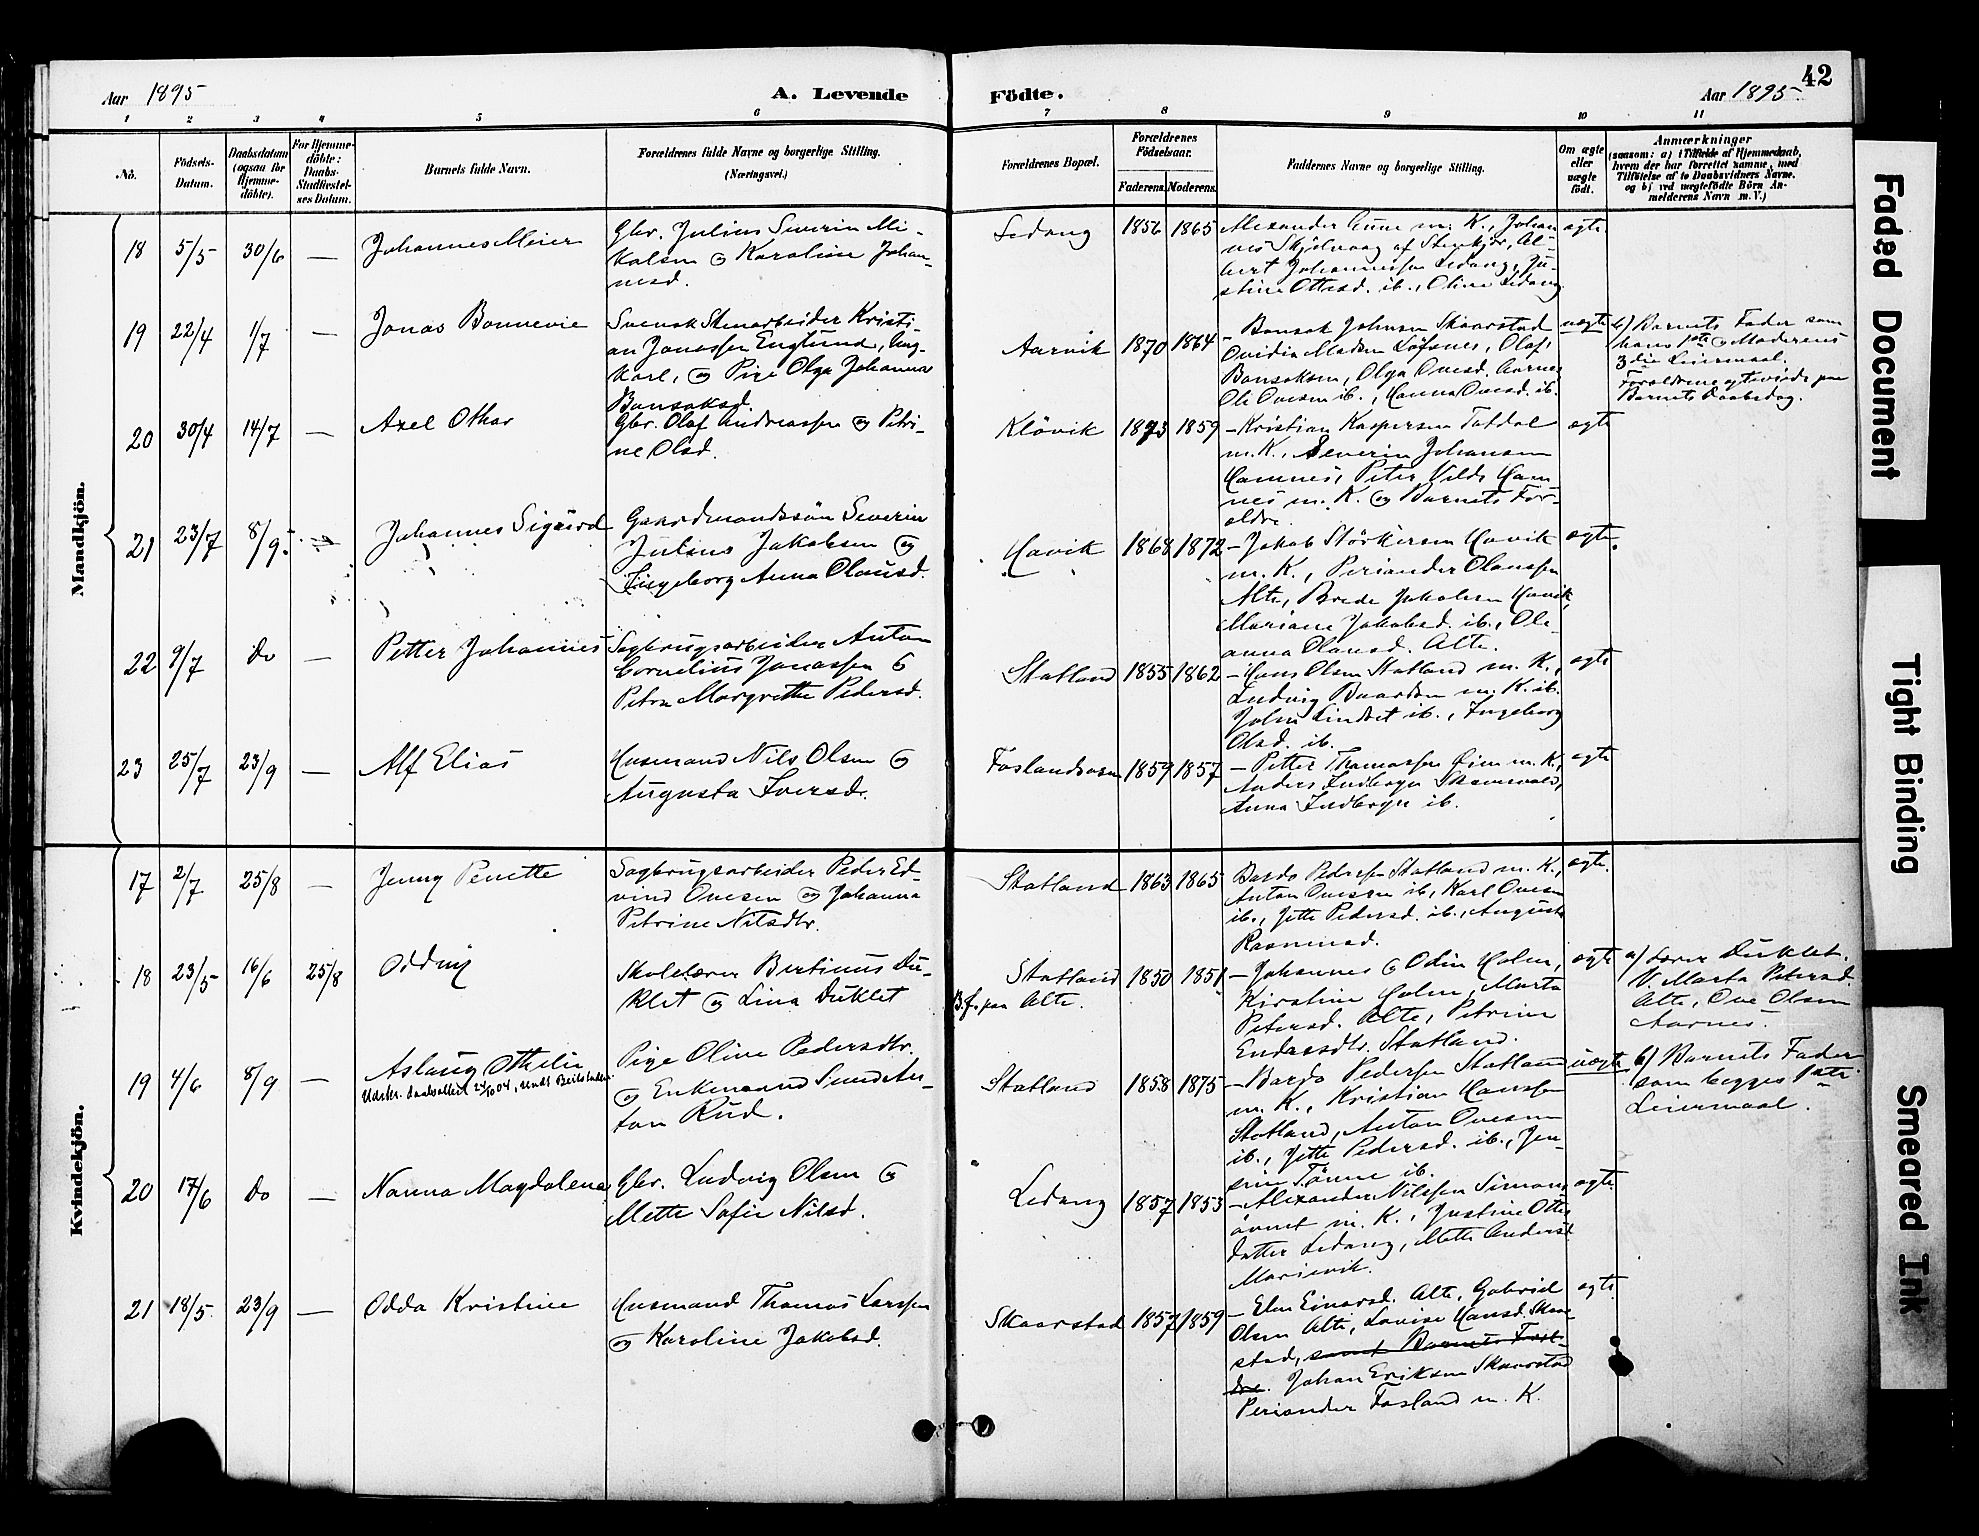 Aar 1895
A. Levende
Födte.
Aar 1895
42
1 2 3 4 5 6 7 8 9 10 11
No.
Födsels-
Datum.
Daabsdatum
(ogsaa for
Hjemme-
döbte).
For Hjemme-
döbte:
Daabs-
Stadfæstel-
ses Datum.
Barnets fulde Navn.
Forældrenes fulde Navne og borgerlige Stilling.
(Næringsvei.)
Forældrenes Bopæl.
Forældrenes
Födselsaar.
Faderens. Moderens.
Faddernes Navne og borgerlige Stilling.
Om ægte
eller
uægte
födt.
Anmærkninger
(saasom: a) i Tilfælde af Hjemmedaab,
hvem der har forrettet samme, med
Tilföielse af to Daabsvidners Navne.
og b) ved uægtefödte Börn An-
melderens Navn m. V.)
Mandkjön.
18 5/5 30/6 —
Johannes Meier
Gbr. Julius Severin Mi-
kalsen og Karoline Johan-
nesd.
Ledang
1856 1865
Alexander Aune m. K., Johan
nes Skjölvaag af Stenkjær, Al-
bert Johannessen Ledang, Ju-
stine Ottesd. ib., Oline Ledang
ægte
19 22/4 1/7 —
Jonas Bonnevie
Svensk Stenarbeider Kristi-
an Jonassen Englund, Ung-
karl, og Pige Olga Johanna
Bonsaksd.
Aarvik
1870 1864
— Bonsak Johnsen Skaarstad
Ovidia Madsen Löfsnes, Olaf
Bonsaksen, Olga Ovesd. Aarnes
Ole Ovesen ib., Hanna Ovesd. ib.
uægte
b) Barnets Fader som
hans 1ste og Moderens
3die Leiermaal.
Forældrene ægteviede paa
Barnets Daabsdag.
20 30/4 14/7 —
Axel Othar
Gbr. Olaf Andreassen og Petri-
ne Olsd.
Klövik
1873 1859
— Kristian Kaspersen Tatdal
m. K., Severin Johansen
Hamnes, Peter Vilds Ham
nes m. K. og Barnets For-
ældre.
ægte
21 23/7 8/9
Johannes Sigurd
Gaardmandssön Severin
Julius Jakobsen og
Ingeborg Anna Olausd.
Havik
1868 1872
— Jakob Störkersen Havik
m. K., Periander Olaussen
Alte, Brede Jakobsen Havik,
Mariane Jakobsd. ib., Ole-
anna Olausd. Alte.
ægte
22 9/7 Do —
Petter Johannes
Sagbrugsarbeider Anton
Cornelius Jonassen &
Petra Margrethe Pedersd.
Statland
1855 1862
— Hans Olsen Statland m. K.,
Ludvig Baardsen m. K. ib.
John Lindset ib., Ingeborg
Olsd. ib.
ægte
23 25/7 23/9 —
Alf Elias
Husmand Nils Olsen &
Augusta Iversd.
Foslandsosen
1859 1857
— Petter Thomassen Öien m. K.,
Anders Indbergn
Anna Indbergn ib.
ægte
Kvindekjön.
17 2/7 25/8 —
Jenny Penette
Sagbrugsarbeider Peder Ed-
vind Ovesen og Johanna
Petrine Nilsdtr.
Statland
1863 1865
Bardo Pedersen Statland m. K.,
Anton Ovesen ib., Karl Ovesen
ib., Jette Pedersd. ib., Augusta
Rasmusd.
ægte.
18 23/5 16/6 25/8
Oddny
Skolelærer Bertinus Du-
klet og Lina Duklet
Statland
B.f. paa Alte.
1850 1851
— Johannes & Odin Holm,
Kirstine Holm, Marta
Petersd. Alte, Petrine
Endresdtr. Statland.
ægte
a) Lærer Duklet.
V. Marta Petersd.
Alte, Ove Olsen
Aarnes.
19 4/6 8/9 —
Aslaug Othelie
Udskr. daabsattest 24/10 04,
Pige Oline Pedersdtr.
og Enkemand Svend An-
ton Rud.
Statland
1858 1875
— Bardo Pedersen Statland
m. K., Kristian Hanssen
Statland, Anton Ovesen
ib., Jette Pedersd. ib., Jen-
sine Tönne ib.
uægte
b) Barnets Fader
som begges 1ste
Leiermaal.
20 17/6 Do —
Nanna Magdalena
Gbr. Ludvig Olsen &
Mette Sofie Nilsd.
Ledang
1857 1853
— Alexander Nilssen Simons
övret m. K., Justine Ottes
datter Ledang, Mette Andersd.
Marievik.
ægte
21 18/5 23/9 —
Odda Kristine
Husmand Thomas Larssen
og Karoline Jakobsd.
Skaarstad
1857 1859
— Elen Einarsd. Alte, Gabriel
Olsen Alte, Lovise Hansd. Skaar-
stad, samt Barnets Foræl-
dre. Johan Eriksen Skaarstad
Periander Fosland m. K.
ægte
Faded Document
Tight Binding
Smeared Ink